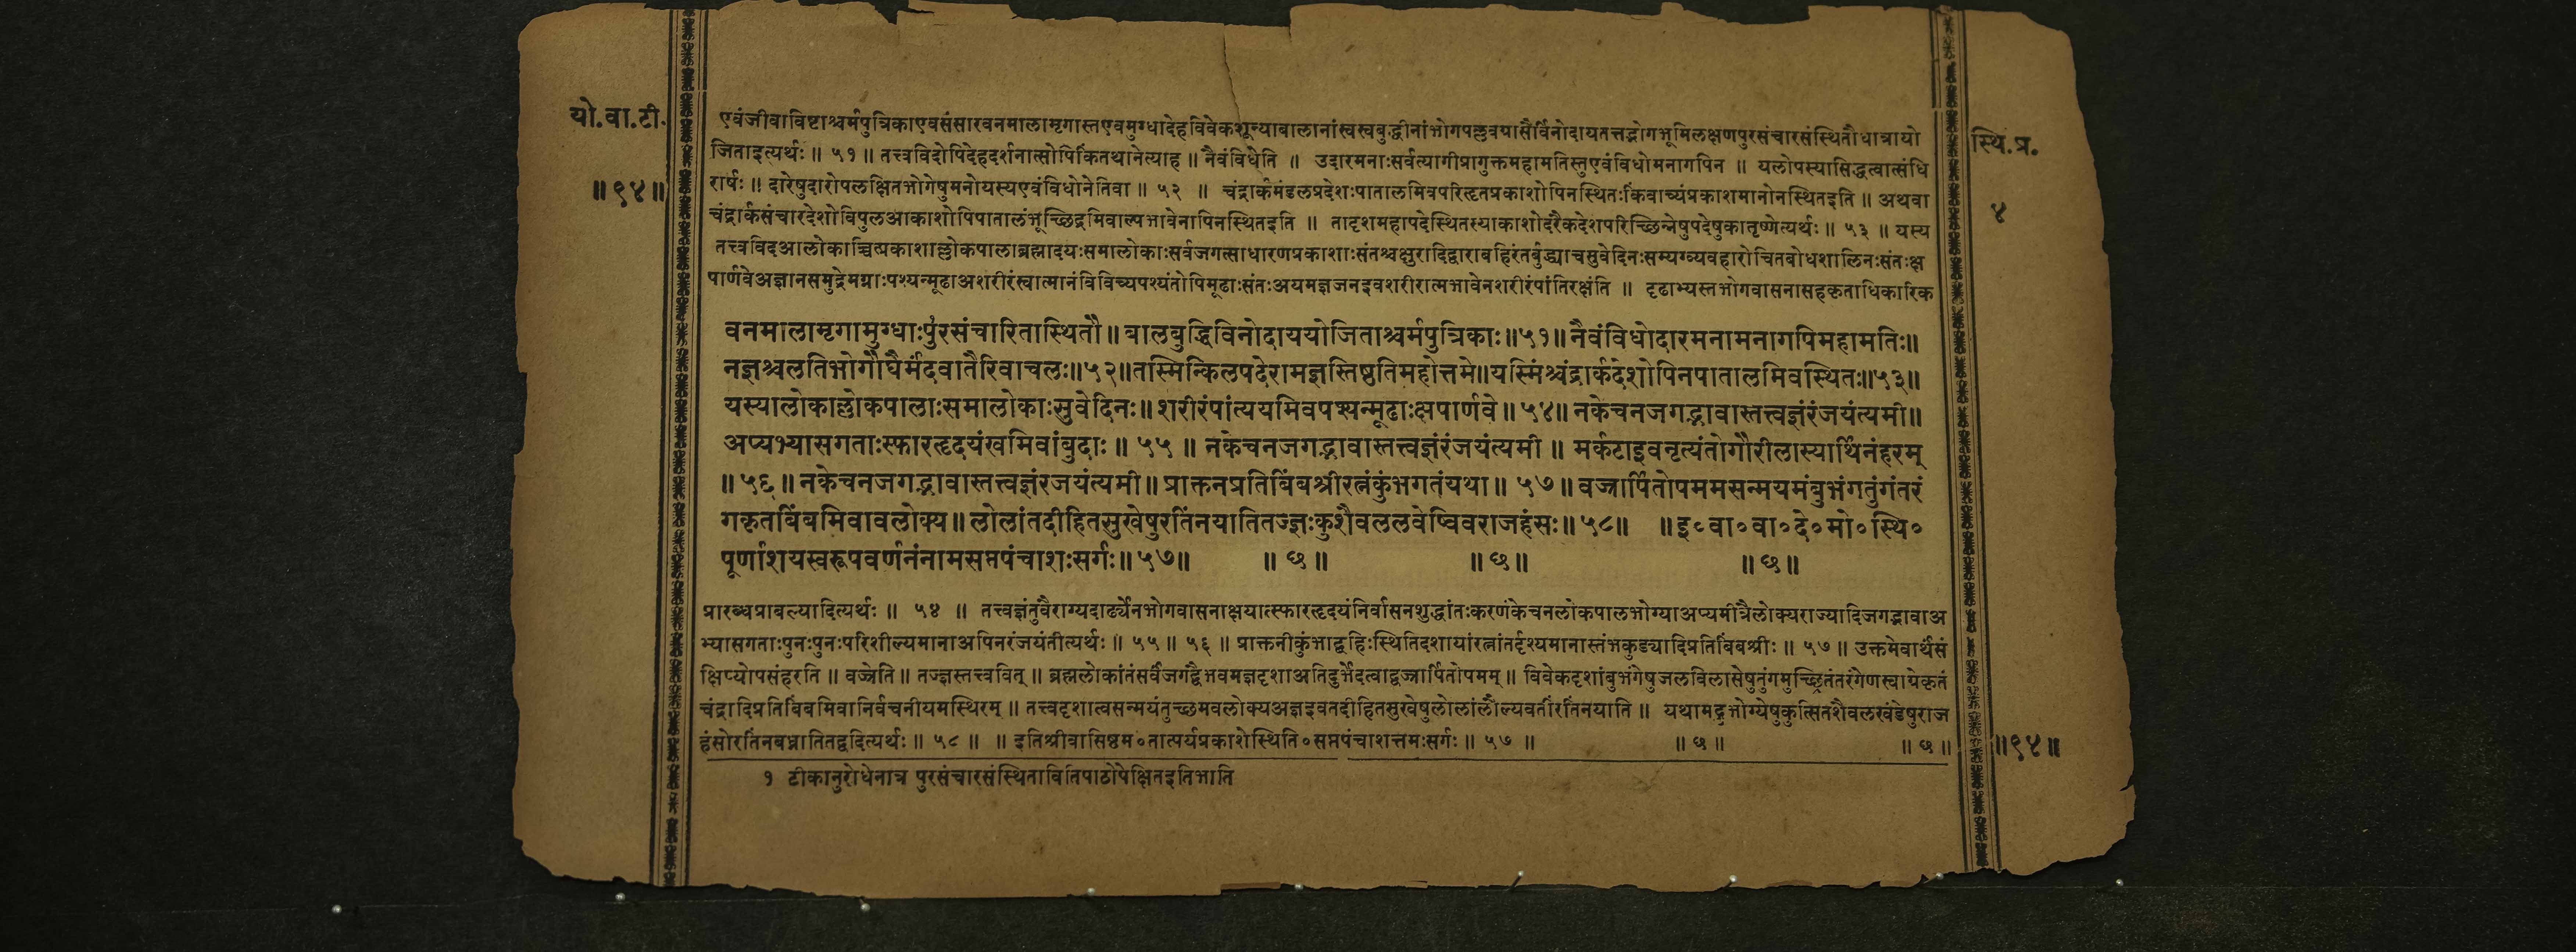 यो.वा.टी.
॥९४॥
एवंजीवाविष्टाश्चर्मपुत्रिकाएवसंसारवनमालामृगास्तएवमुग्धादेहविवेकशून्याबालानांस्वस्वबुद्धीनांभोगपल्लवग्रासैर्विनोदायतत्तद्भोगभूमिलक्षणपुरसंचारसंस्थितौधात्रायो
जिताइत्यर्थः ॥ ५१ ॥ तत्त्वविदोपिदेहदर्शनात्सोपिकिंतथानेत्याह ॥ नैवंविधेति ॥ उदारमनाःसर्वत्यागीप्रागुक्तमहामतिस्तुएवंविधोमनागपिन ॥ यलोपस्यासिद्धत्वात्संधि
रार्षः ॥ दारेषुदारोपलक्षितभोगेषुमनोयस्यएवंविधोनेतिवा ॥ ५२ ॥ चंद्रार्कमंडलप्रदेशःपातालमिवपरिहृतप्रकाशोपिनस्थितःकिंवाच्यंप्रकाशमानोनस्थितइति ॥ अथवा
चंद्रार्कसंचारदेशोविपुलआकाशोपिपातालंभूच्छिद्रमिवाल्पभावेनापिनस्थितइति ॥ तादृशमहापदेस्थितस्याकाशोदरैकदेशपरिच्छिन्नेषुपदेषुकातृष्णेत्यर्थः ॥ ५३ ॥ यस्य
तत्त्वविदआलोकाच्चित्प्रकाशाल्लोकपालाब्रह्मादयःसमालोकाःसर्वजगत्साधारणप्रकाशाःसंतश्चक्षुरादिद्वाराबहिरंतर्बुद्ध्याचसुवेदिनःसम्यग्व्यवहारोचितबोधशालिनःसंतःक्ष
पार्णवेअज्ञानसमुद्रेमग्नाःपश्यन्मूढाअशरीरंस्वात्मानंविविच्यपश्यंतोपिमूढाःसंतःअयमज्ञजनइवशरीरात्मभावेनशरीरंपांतिरक्षंति ॥ दृढाभ्यस्तभोगवासनासहकृताधिकारिक
वनमालामृगामुग्धाःपु१रसंचारितास्थितौ ॥ बालबुद्धिविनोदाययोजिताश्चर्मपुत्रिकाः॥५१॥ नैवंविधोदारमनामनागपिमहामतिः॥
नज्ञश्चलतिभोगौघैर्मंदवातैरिवाचलः॥५२॥तस्मिन्किलपदेरामज्ञस्तिष्ठतिमहोत्तमे॥यस्मिंश्चंद्रार्कदेशोपिनपातालमिवस्थितः॥५३॥
यस्यालोकाल्लोकपालाःसमालोकाःसुवेदिनः॥ शरीरंपांत्ययमिवपश्यन्मूढाःक्षपार्णवे ॥ ५४॥ नकेचनजगद्भावास्तत्त्वज्ञंरंजयंत्यमी॥
अप्यभ्यासगताःस्फारहृदयंखमिवांबुदाः ॥ ५५ ॥ नकेचनजगद्भावास्तत्त्वज्ञंरंजयंत्यमी ॥ मर्कटाइवनृत्यंतोगौरीलास्यार्थिनंहरम्
॥ ५६ ॥ नकेचनजगद्भावास्तत्त्वज्ञंरंजयंत्यमी॥ प्राक्तनप्रतिबिंबश्रीरत्नंकुंभगतंयथा॥ ५७॥ वज्रार्पितोपममसन्मयमंबुभंगतुंगंतरं
गकृतबिंबमिवावलोक्य॥ लोलांतदीहितसुखेषुरतिंनयातितज्ज्ञःकुशैवललवेष्विवराजहंसः॥ ५८॥ ॥इ०वा०वा०दे०मो०स्थि०
पूर्णाशयस्वरूपवर्णनंनामसप्तपंचाशःसर्गः॥ ५७॥ ॥ छ ॥ ॥ छ ॥ ॥ छ ॥
प्रारब्धप्राबल्यादित्यर्थः ॥ ५४ ॥ तत्त्वज्ञंतुवैराग्यदार्ढ्येनभोगवासनाक्षयात्स्फारहृदयंनिर्वासनशुद्धांतःकरणंकेचनलोकपालभोग्याअप्यमीत्रैलोक्यराज्यादिजगद्भावाअ
भ्यासगताःपुनःपुनःपरिशील्यमानाअपिनरंजयंतीत्यर्थः ॥ ५५ ॥ ५६ ॥ प्राक्तनीकुंभाद्बहिःस्थितिदशायांरत्नांतर्दृश्यमानास्तंभकुड्यादिप्रतिबिंबश्रीः ॥ ५७ ॥ उक्तमेवार्थंसं
क्षिप्योपसंहरति ॥ वज्रेति ॥ तज्ज्ञस्तत्त्ववित् ॥ ब्रह्मलोकांतंसर्वंजगद्वैभवमज्ञदृशाअतिदुर्भेदत्वाद्वज्रार्पितोपमम् ॥ विवेकदृशांबुभंगेषुजलविलासेषुतुंगमुच्छ्रितंतरंगेणस्वाग्रेकृतं
चंद्रादिप्रतिबिंबमिवानिर्वचनीयमस्थिरम् ॥ तत्त्वदृशात्वसन्मयंतुच्छमवलोक्यअज्ञइवतदीहितसुखेषुलोलांलौल्यवतींरतिंनयाति ॥ यथामद्गुभोग्येषुकुत्सितशैवलखंडेषुराज
हंसोरतिंनबध्नातितद्वदित्यर्थः ॥ ५८ ॥ ॥ इतिश्रीवासिष्ठम०तात्पर्यप्रकाशेस्थिति०सप्तपंचाशत्तमःसर्गः ॥ ५७ ॥ ॥ छ ॥ ॥ छ ॥
१ टीकानुरोधेनात्र पुरसंचारसंस्थितावितिपाठोपेक्षितइतिभाति
स्थि.प्र.
४
॥९४॥